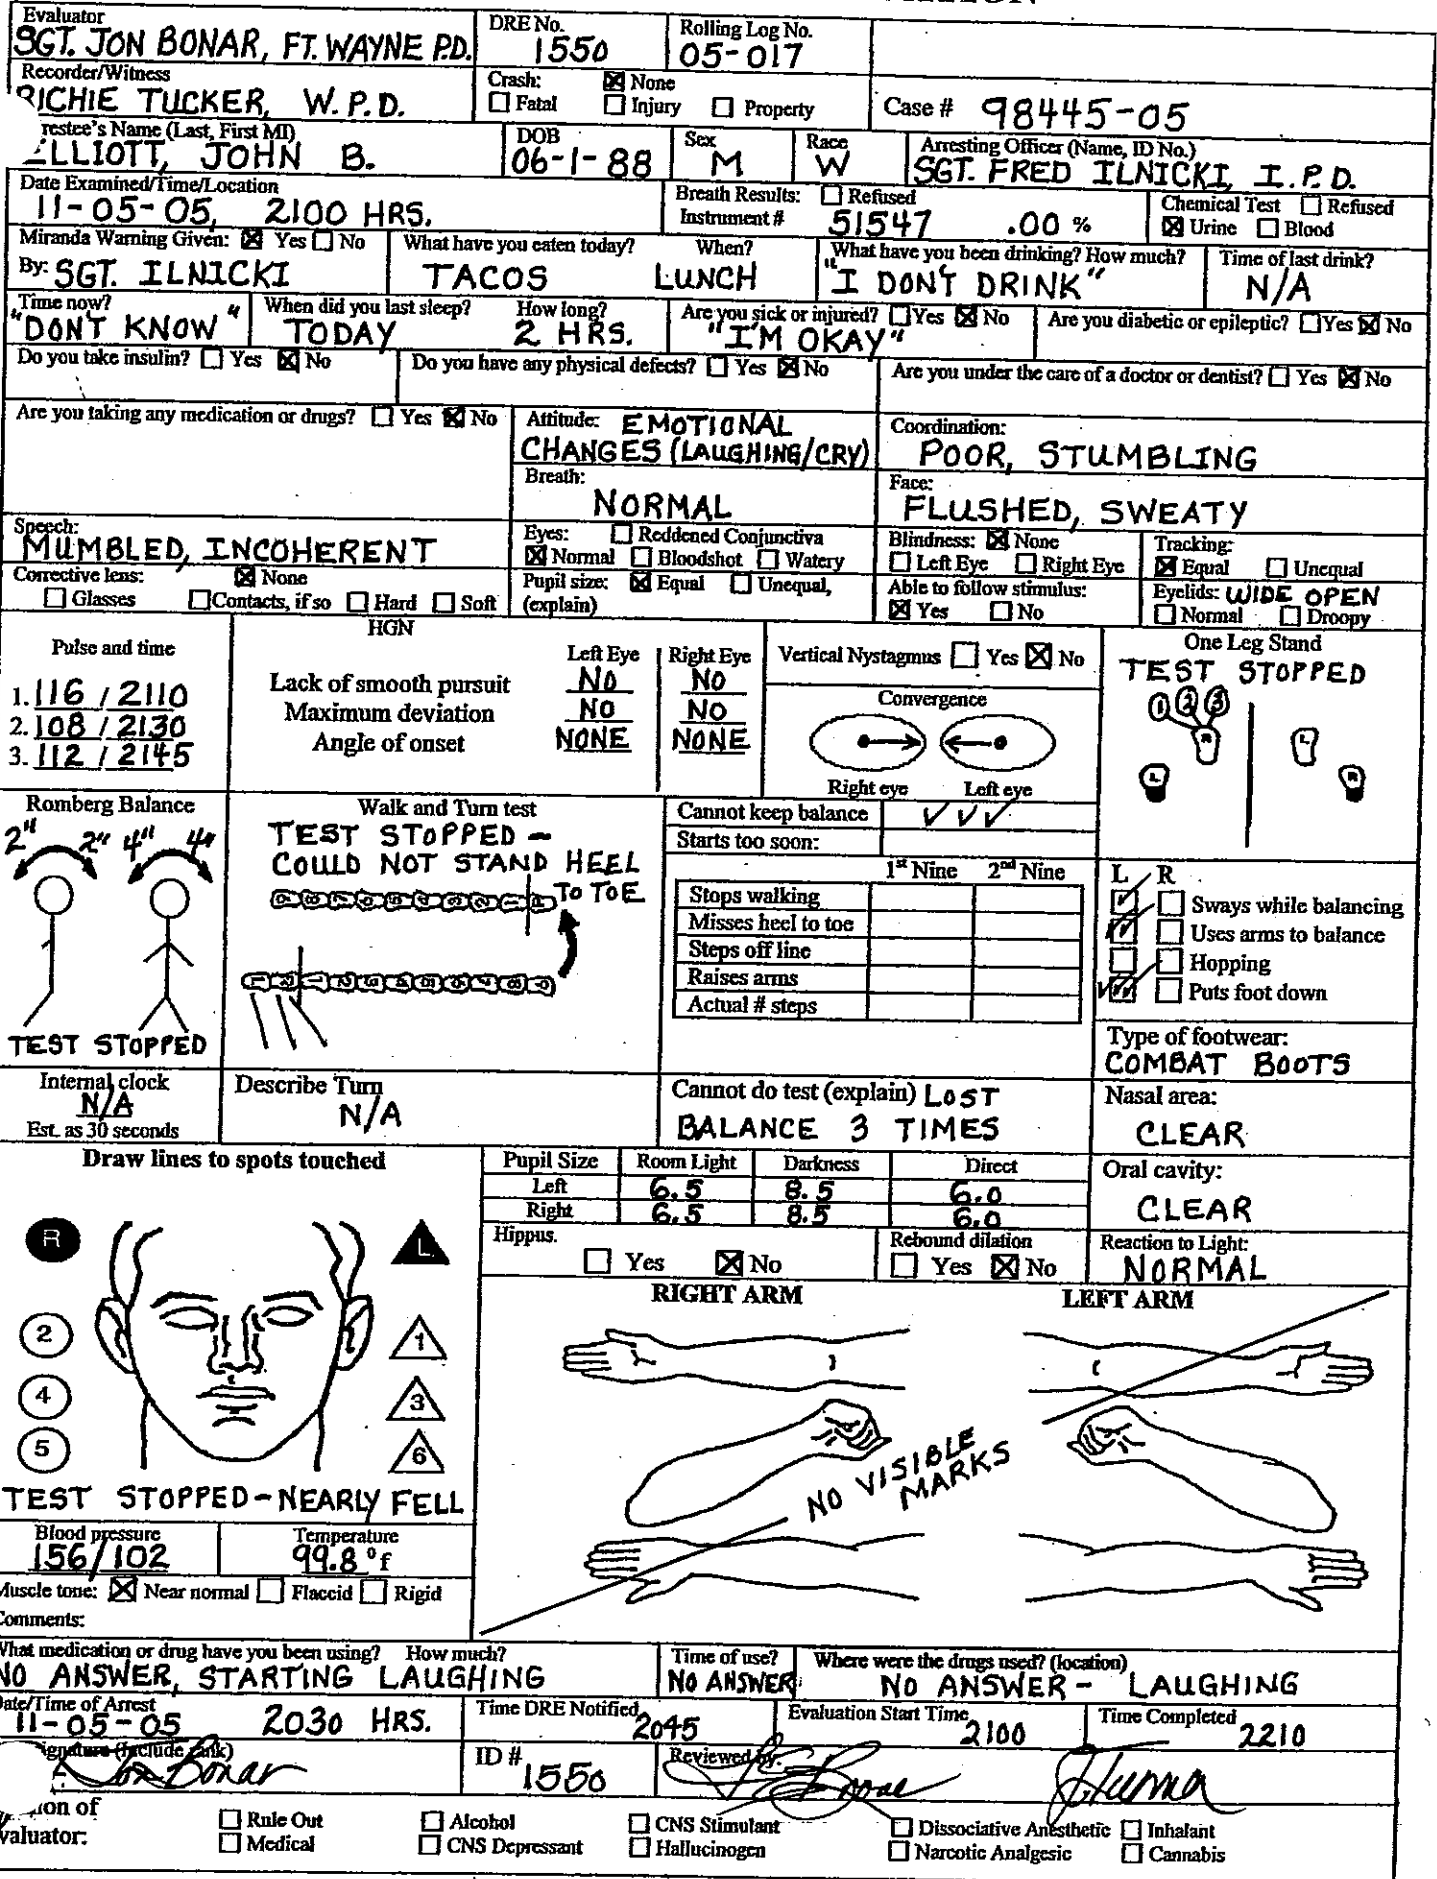 Evaluator
SGT. JON BONAR, FT. WAYNE P.D.
DRE No.
1550
Rolling Log No.
05-017
Recorder/Witness
RICHIE TUCKER, W.P.D.
Crash: ☒ None
☐ Fatal ☐ Injury ☐ Property
Case # 98445-05
restee's Name (Last, First MI)
ELLIOTT, JOHN B.
DOB
06-1-88
Sex
M
Race
W
Arresting Officer (Name, ID No.)
SGT. FRED ILNICKI, I.P.D.
Date Examined/Time/Location
11-05-05, 2100 HRS.
Breath Results: ☐ Refused
Instrument # 51547 .00 %
Chemical Test ☐ Refused
☒ Urine ☐ Blood
Miranda Warning Given: ☒ Yes ☐ No
By: SGT. ILNICKI
What have you eaten today? When?
TACOS LUNCH
What have you been drinking? How much?
"I DON'T DRINK"
Time of last drink?
N/A
Time now?
"DON'T KNOW"
When did you last sleep? How long?
TODAY 2 HRS.
Are you sick or injured? ☐ Yes ☒ No
"I'M OKAY"
Are you diabetic or epileptic? ☐ Yes ☒ No
Do you take insulin? ☐ Yes ☒ No
Do you have any physical defects? ☐ Yes ☒ No
Are you under the care of a doctor or dentist? ☐ Yes ☒ No
Are you taking any medication or drugs? ☐ Yes ☒ No
Attitude: EMOTIONAL
CHANGES (LAUGHING/CRY)
Coordination:
POOR, STUMBLING
Breath:
NORMAL
Face:
FLUSHED, SWEATY
Speech:
MUMBLED, INCOHERENT
Eyes: ☐ Reddened Conjunctiva
☒ Normal ☐ Bloodshot ☐ Watery
Blindness: ☒ None
☐ Left Eye ☐ Right Eye
Tracking:
☒ Equal ☐ Unequal
Corrective lens: ☒ None
☐ Glasses ☐ Contacts, if so ☐ Hard ☐ Soft
Pupil size: ☒ Equal ☐ Unequal,
(explain)
Able to follow stimulus:
☒ Yes ☐ No
Eyelids: WIDE OPEN
☐ Normal ☐ Droopy
Pulse and time
1. 116 / 2110
2. 108 / 2130
3. 112 / 2145
HGN
Left Eye Right Eye
Lack of smooth pursuit NO NO
Maximum deviation NO NO
Angle of onset NONE NONE
Vertical Nystagmus ☐ Yes ☒ No
Convergence
Right eye Left eye
One Leg Stand
TEST STOPPED
1 2 3
R L
L R
Romberg Balance
2" 2" 4" 4"
TEST STOPPED
Walk and Turn test
TEST STOPPED -
COULD NOT STAND HEEL
TO TOE
Cannot keep balance ✓✓✓
Starts too soon:
1st Nine 2nd Nine
Stops walking
Misses heel to toe
Steps off line
Raises arms
Actual # steps
L R
Sways while balancing
Uses arms to balance
Hopping
Puts foot down
Type of footwear:
COMBAT BOOTS
Internal clock
N/A
Est. as 30 seconds
Describe Turn
N/A
Cannot do test (explain) LOST
BALANCE 3 TIMES
Nasal area:
CLEAR
Draw lines to spots touched
R L
2 1
4 3
5 6
TEST STOPPED - NEARLY FELL
Pupil Size Room Light Darkness Direct
Left 6.5 8.5 6.0
Right 6.5 8.5 6.0
Oral cavity:
CLEAR
Hippus.
☐ Yes ☒ No
Rebound dilation
☐ Yes ☒ No
Reaction to Light:
NORMAL
RIGHT ARM LEFT ARM
NO VISIBLE
MARKS
Blood pressure
156/102
Temperature
99.8 °f
Muscle tone: ☒ Near normal ☐ Flaccid ☐ Rigid
Comments:
What medication or drug have you been using? How much?
NO ANSWER, STARTING LAUGHING
Time of use?
NO ANSWER
Where were the drugs used? (location)
NO ANSWER - LAUGHING
Date/Time of Arrest
11-05-05 2030 HRS.
Time DRE Notified
2045
Evaluation Start Time
2100
Time Completed
2210
ignature (Include rank)
Jon Bonar
ID #
1550
Reviewed by:
ion of
valuator:
☐ Rule Out ☐ Alcohol ☐ CNS Stimulant ☐ Dissociative Anesthetic ☐ Inhalant
☐ Medical ☐ CNS Depressant ☐ Hallucinogen ☐ Narcotic Analgesic ☐ Cannabis